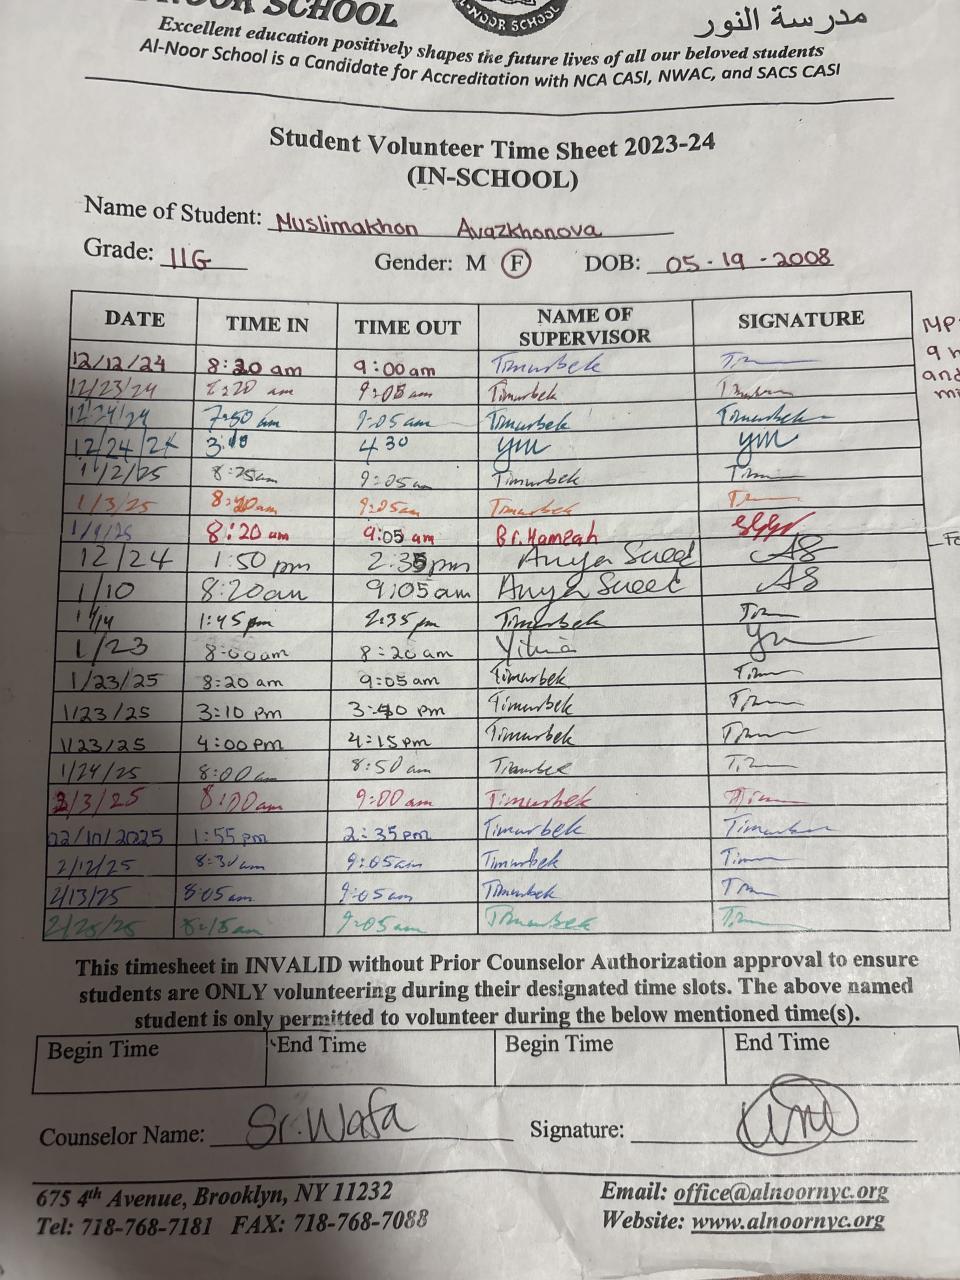 SCHOOL
AL-NOOR SCHOOL
مدرسة النور
Excellent education positively shapes the future lives of all our beloved students
Al-Noor School is a Candidate for Accreditation with NCA CASI, NWAC, and SACS CASI
Student Volunteer Time Sheet 2023-24
(IN-SCHOOL)
Name of Student: Muslimakhon Avazkhonova
Grade: 11G Gender: M F DOB: 05-19-2008
DATE TIME IN TIME OUT NAME OF SUPERVISOR SIGNATURE
12/12/24 8:20 am 9:00am Timurbek
12/23/24 8:20 am 9:05am Timurbek
12/24/24 7:50 am 9:05am Timurbek Timurbek
12/24/24 4 30 ym ym
1/2/25 8:25am 9:05am Timurbek
1/3/25 9:05am Timurbek
8:20 am 9:05 am Br. Hamzah
12/24 1:50 pm 2:35pm AS
1/10 8:20am 9:05am AS
1/14 1:45pm 2:35pm Timurbek
1/23 8:00am 8:20am
1/23/25 8:20 am 9:05am Timurbek
1/23/25 3:10 pm pm Timurbek
1/23/25 4:00pm 4:15pm Timurbek
1/24/25 8:00am 8:50am Timurbek
3/3/25 9:00am Timurbek
02/10/2025 1:55pm 2:35pm Timurbek
2/12/25 8:30am 9:05am Timurbek
2/13/25 8:05am 9:05am Timurbek
8:15am 9:05am Timurbek
This timesheet in INVALID without Prior Counselor Authorization approval to ensure
students are ONLY volunteering during their designated time slots. The above named
student is only permitted to volunteer during the below mentioned time(s).
Begin Time End Time Begin Time End Time
Counselor Name: Sr. Wafa Signature:
675 4th Avenue, Brooklyn, NY 11232 Email: office@alnoornyc.org
Tel: 718-768-7181 FAX: 718-768-7088 Website: www.alnoornyc.org